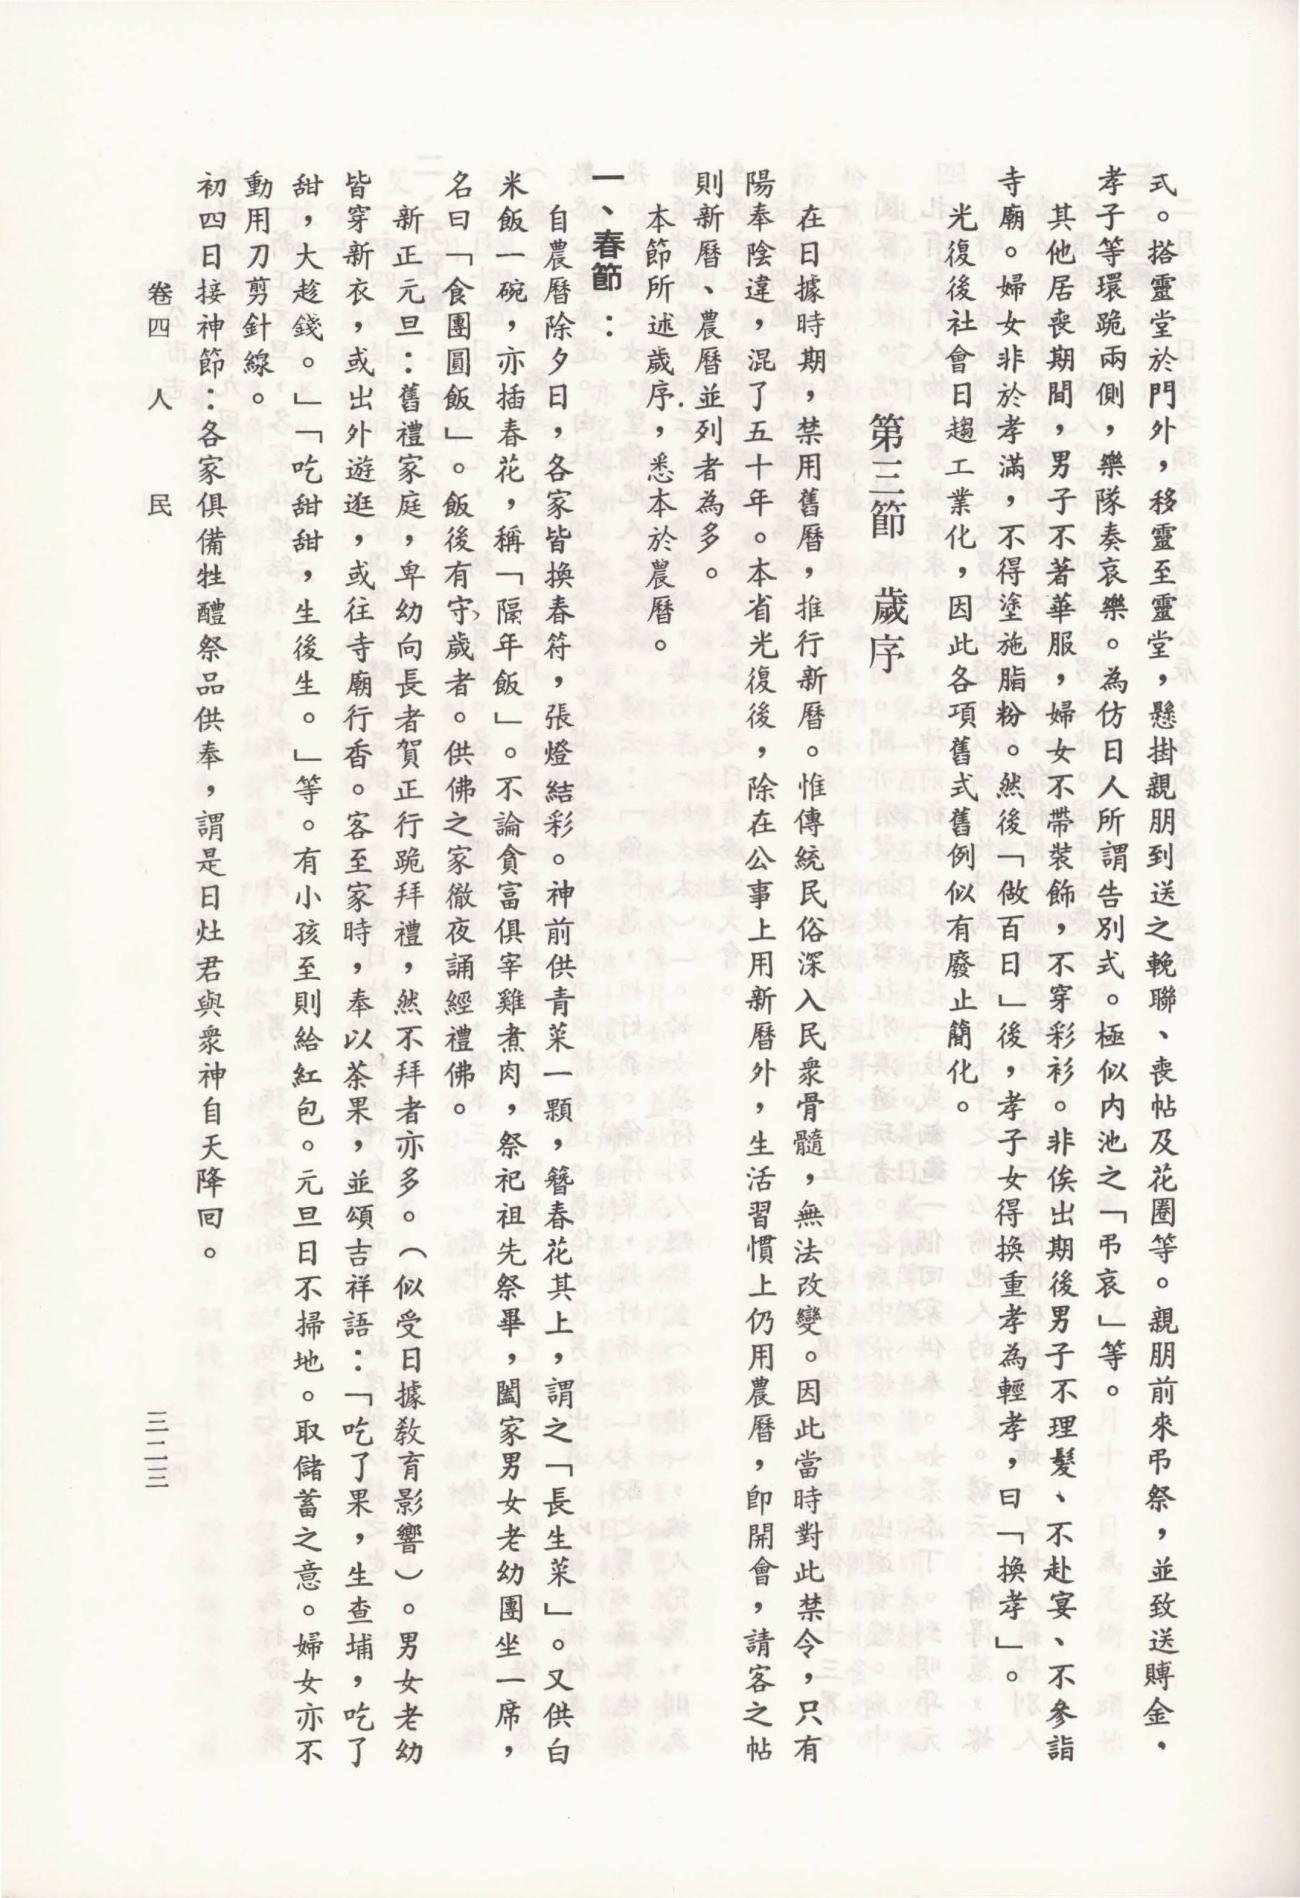 式。搭靈堂於門外，移靈至靈堂，懸掛親朋到送之輓聯、喪帖及花圈等。親朋前來弔祭，並致送賻金，
孝子等環跪兩側，樂隊奏哀樂。為仿日人所謂告別式。極似內池之「弔哀」等。
其他居喪期間，男子不著華服，婦女不帶裝飾，不穿彩衫。非俟出期後男子不理髮、不赴宴、不參詣
寺廟。婦女非於孝滿，不得塗施脂粉。然後「做百日」後，孝子女得換重孝為輕孝，曰「換孝」。
光復後社會日趨工業化，因此各項舊式舊例似有廢止簡化。
第三節　歲序
在日據時期，禁用舊曆，推行新曆。惟傳統民俗深入民衆骨髓，無法改變。因此當時對此禁令，只有
陽奉陰違，混了五十年。本省光復後，除在公事上用新曆外，生活習慣上仍用農曆，即開會，請客之帖
則新曆、農曆並列者為多。
本節所述歲序，悉本於農曆。
一、春節：
自農曆除夕日，各家皆換春符，張燈結彩。神前供青菜一顆，簪春花其上，謂之「長生菜」。又供白
米飯一碗，亦插春花，稱「隔年飯」。不論貧富俱宰雞煮肉，祭祀祖先祭畢，闔家男女老幼團坐一席，
名曰「食團圓飯」。飯後有守歲者。供佛之家徹夜誦經禮佛。
新正元旦：舊禮家庭，卑幼向長者賀正行跪拜禮，然不拜者亦多。（似受日據敎育影響）。男女老幼
皆穿新衣，或出外遊逛，或往寺廟行香。客至家時，奉以茶果，並頌吉祥語：「吃了果，生查埔，吃了
甜，大趁錢。」「吃甜甜，生後生。」等。有小孩至則給紅包。元旦日不掃地。取儲蓄之意。婦女亦不
動用刀剪針線。
初四日接神節：各家俱備牲醴祭品供奉，謂是日灶君與衆神自天降回。
卷四　人　民
三二三